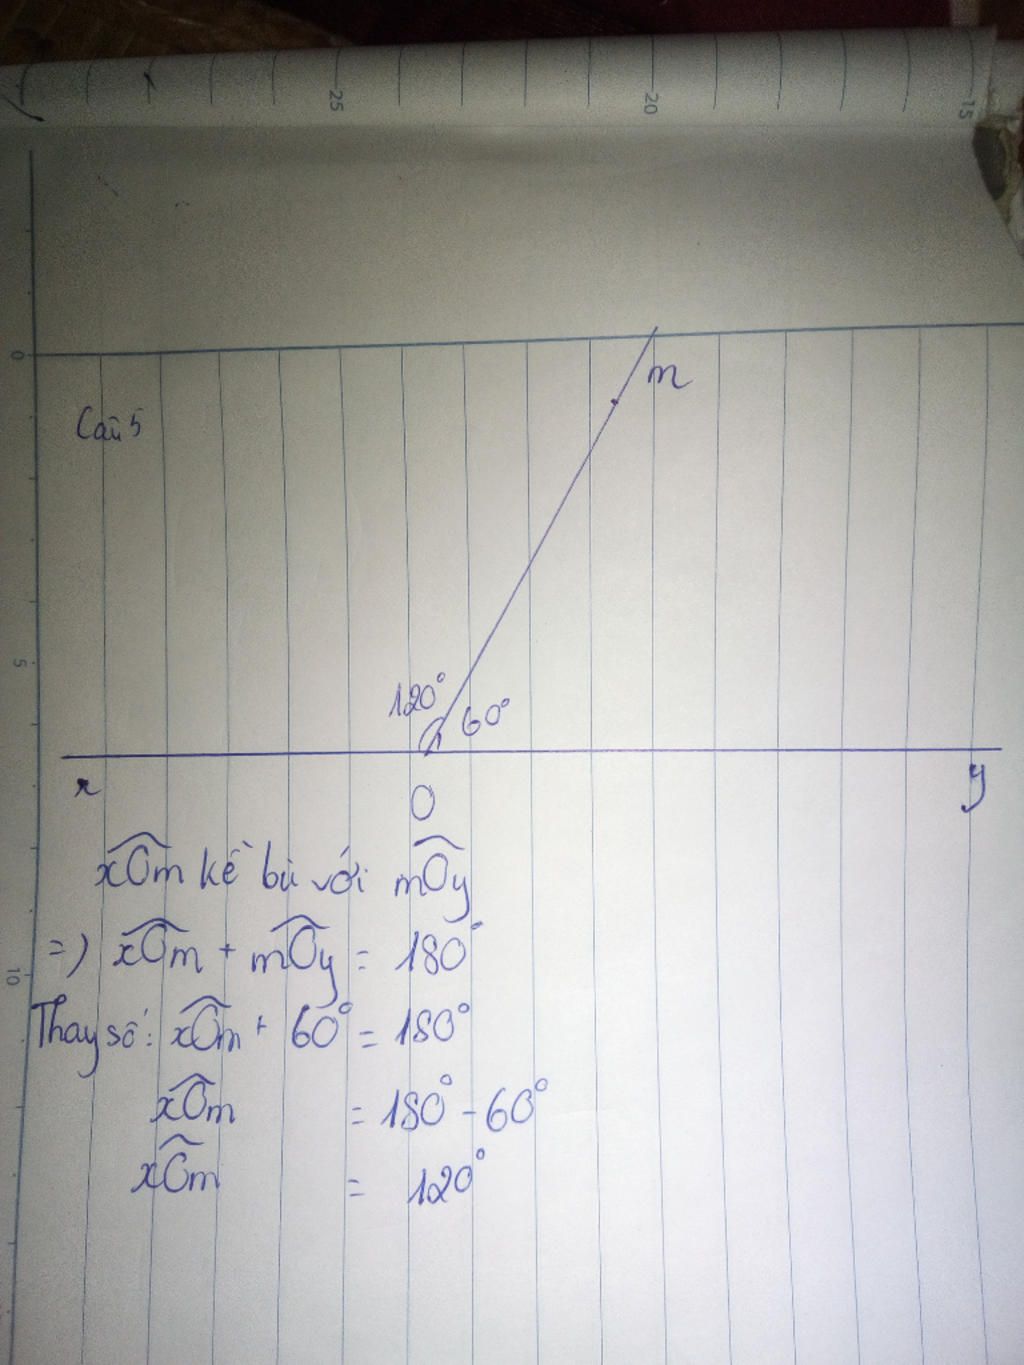 25
20
15
0
Câu 5
m
5
120° 60°
x
y
O
xOm kề bù với mOy
=) xOm + mOy = 180°
10
Thay số: xOm + 60° = 180°
xOm = 180° - 60°
xOm = 120°